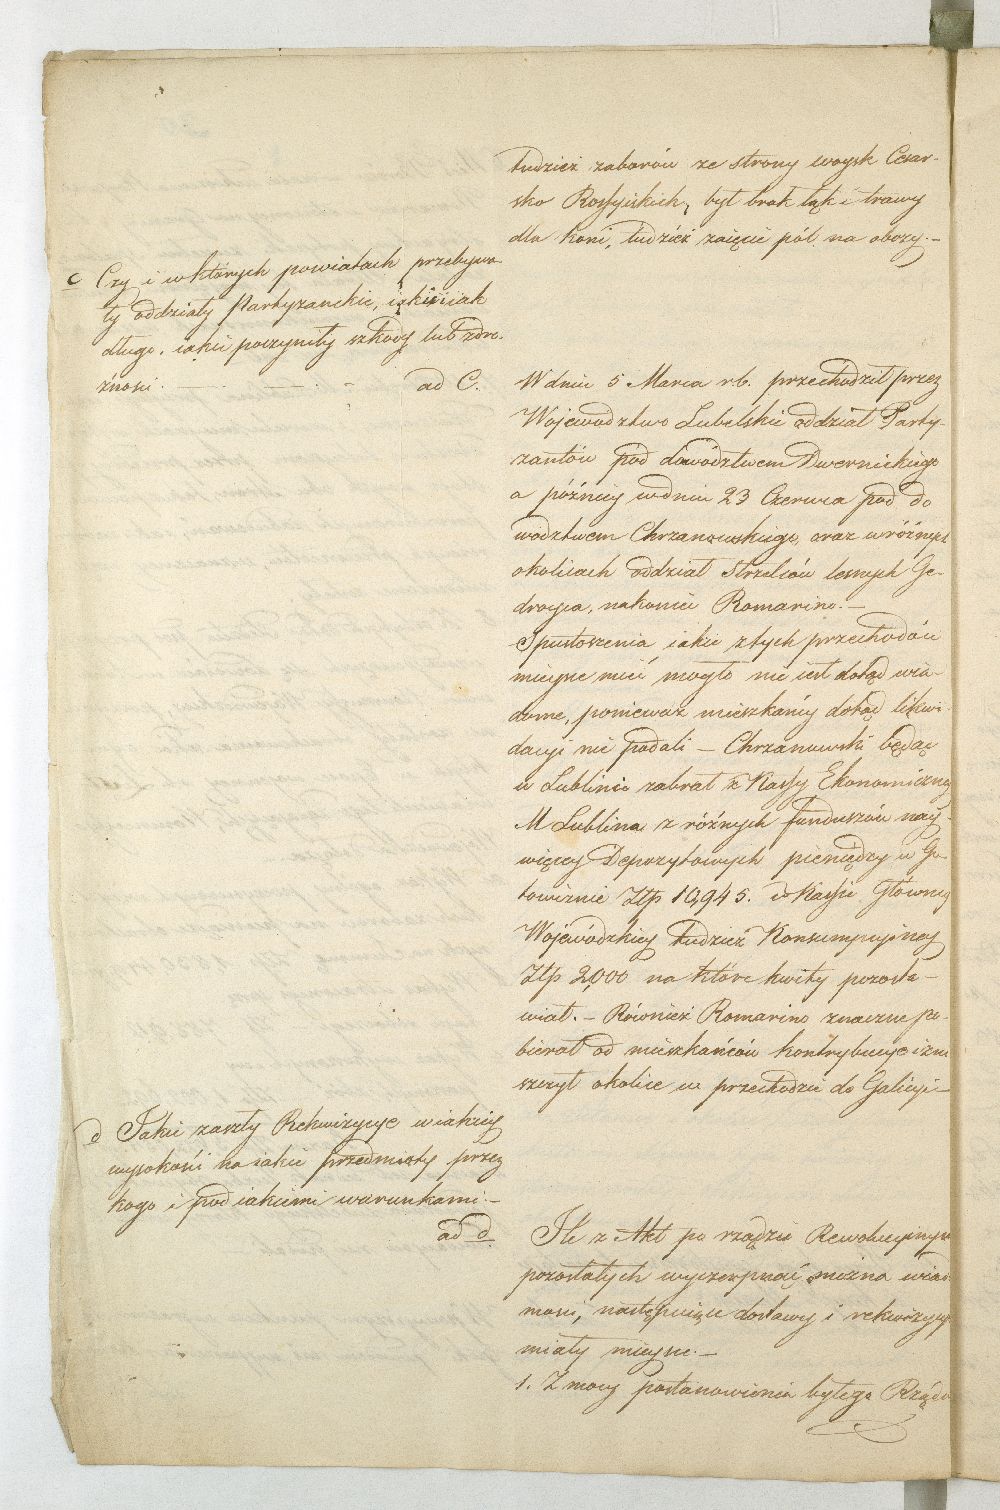 tudzież zaborów ze strony woysk Cesar-
sko Rossyiskich, był brak łąk i trawy
dla koni, tudzież zaięcie pól na obozy.-
c Czy i w których powiatach przebywa-
ły oddziały Partyzanckie, iakie iak
długo, iakie poczyniły szkody lub zdro-
żności. ad C.
W dniu 5 Marca rb. przechodził przez
Wojewodztwo Lubelskie oddział Party-
zantów pod dowództwem Dwernickiego
a później w dniu 23 Czerwca pod do
wództwem Chrzanowskiego, oraz w różnych
okolicach oddział strzelców lesnych Ge-
droyca, nakoniec Romarino.-
Spustoszenia iakie z tych przechodów
mieysce mieć mogło nie iest dotąd wia-
dome, ponieważ mieszkańcy dotąd likwi-
dacyi nie podali - Chrzanowski będąc
w Lublinie zabrał z Kassy Ekonomiczney
M Lublina z różnych funduszów nay-
więcey Depozytowych pieniędzy w Go-
towiznie Złp 10,945. z Kassie Główney
Wojewódzkiey tudzież Konsumpcyiney
Złp 2,000 na które kwity pozosta-
wiał. - Również Romarino znaczne po-
bierał od mieszkańców kontrybucye i zni
szczył okolice w przechodzie do Galicyi-
d Jakie zaszły Rekwizycye w iakiey
wysokości na iakie przedmioty przez
kogo i pod iakiemi warunkami.-
ad d.
Ile z Akt po rządzie Rewolucyinym
pozostałych wyczerpnąć można wiad-
mości, następuiące dostawy i rekwizycye
miały mieysce.-
1. Z mocy postanowienia byłego Rządu